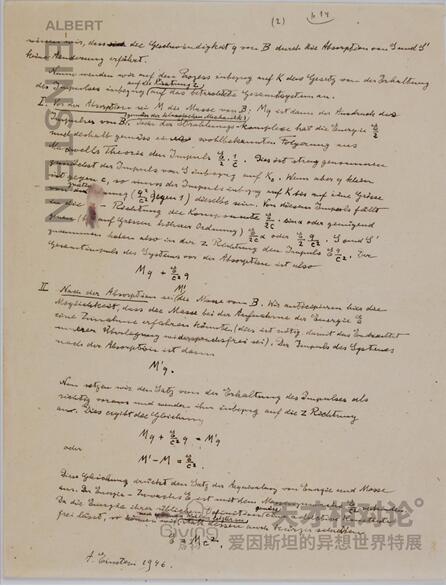 ALBERT
EINSTEIN
(2)
wissen wir, dass die Geschwindigkeit q von B durch die Absorption von S und S'
keine Aenderung erfährt.
Nun wenden wir auf den Prozess inbezug auf K das Gesetz von der Erhaltung
auf die Richtung z
des Impulses inbezug auf das betrachtete Gesamtsystem an.
I. Vor der Absorption sei M die Masse von B; Mq ist dann der Ausdruck des
(gemäss der klassischen Mechanik)
Impulses von B. Jeder der Strahlungs-Komplexe hat die Energie E/2
und deshalb gemäss einer wohlbekannten Folgerung aus
Maxwells Theorie den Impuls E/2 · 1/c. Dies ist streng genommen
zunächst der Impuls von S inbezug auf K₀. Wenn aber q klein
ist gegen c, so muss der Impuls inbezug auf K bis auf eine Grösse
von der (q²/c² gegen 1) dieselbe sein. Von diesem Impuls fällt
in die - Richtung die Komponente E/2c sin α oder genügend
genau (bis auf Grössen höherer Ordnung) E/2c α oder E/2 · q/c². S und S'
zusammen haben also in der z Richtung den Impuls E q/c². Der
Gesamtimpuls des Systems vor der Absorption ist also
Mq + E/c² q
II. Nach der Absorption sei M' die Masse von B. Wir antizipieren hier die
Möglichkeit, dass die Masse bei der Aufnahme der Energie E
eine Zunahme erfahren könnte (dies ist nötig, damit das Endresultat
unserer Ueberlegung widerspruchsfrei sei). Der Impuls des Systems
nach der Absorption ist dann
M'q.
Nun setzen wir den Satz von der Erhaltung des Impulses als
richtig voraus und wenden ihn inbezug auf die z Richtung
an. Dies ergibt die Gleichung
Mq + E/c² q = M'q
oder
M' - M = E/c².
Diese Gleichung drückt den Satz der Aequivalenz von Energie und Masse
aus. Der Energie-Zuwachs E ist mit dem Massenzuwachs E/c² verbunden.
Da die Energie ihrer üblichen Definition gemäss eine additive Konstante
frei lässt, so können wir statt dessen auch kürzer schreiben
E = Mc²
A. Einstein 1946.
天才相对论
爱因斯坦的异想世界特展